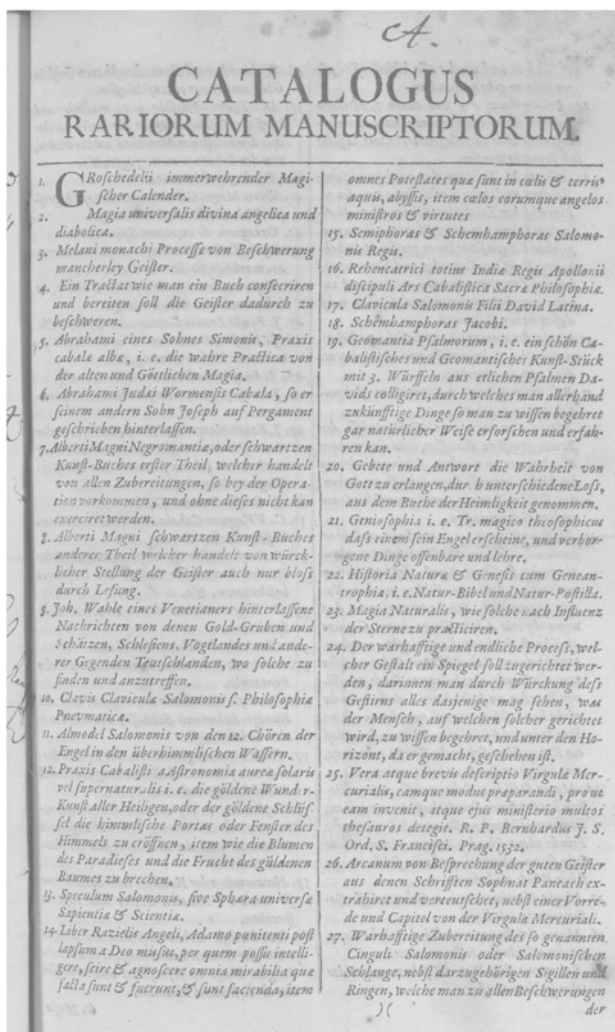 A.
CATALOGUS
RARIORUM MANUSCRIPTORUM.
1. GRoschedelii immerwehrender Magi-
scher Calender.
2. Magia universalis divina angelica und
diabolica.
3. Melani monachi Processe von Beschwerung
mancherley Geister.
4. Ein Tractat wie man ein Buch consecriren
und bereiten soll die Geister dadurch zu
beschweren.
5. Abrahami eines Sohnes Simonis, Praxis
cabalæ albæ, i. e. die wahre Practica von
der alten und Göttlichen Magia.
6. Abrahami Judæi Wormensis Cabala, so er
seinem andern Sohn Joseph auf Pergament
geschrieben hinterlassen.
7. Alberti Magni Negromantiæ, oder schwartzen
Kunst-Buches erster Theil, welcher handelt
von allen Zubereitungen, so bey der Opera-
tion vorkommen, und ohne dieses nicht kan
exerciret werden.
8. Alberti Magni schwartzen Kunst-Buches
anderer Theil welcher handelt von würck-
licher Stellung der Geister auch nur bloss
durch Lesung.
9. Joh. Wahle eines Venetianers hinterlassene
Nachrichten von denen Gold-Gruben und
Schätzen, Schlesiens, Vogtlandes und ande-
rer Gegenden Teutschlanden, wo solche zu
finden und anzutreffen.
10. Clavis Claviculæ Salomonis s. Philosophia
Pnevmatica.
11. Almodel Salomonis von den 12. Chören der
Engel in den überhimmlischen Wassern.
12. Praxis Cabalisti a Astronomiæ aureæ solaris
vel supernaturalis i. e. die göldene Wunder-
Kunst aller Heiligen, oder der göldene Schlüs-
sel die himmlische Portas oder Fenster des
Himmels zu eröffnen, item wie die Blumen
des Paradieses und die Frucht des güldenen
Baumes zu brechen.
13. Speculum Salomonis, sive Sphæra universæ
Sapientiæ & Scientiæ.
14. Liber Razielis Angeli, Adamo pœnitenti post
lapsum a Deo missus, per quem possit intelli-
gere, scire & agnoscere omnia mirabilia quæ
facta sunt & fuerunt, & sunt facienda, item
omnes Potestates quæ sunt in cœlis & terris
aquis, abyssis, item cœlos eorumque angelos
ministros & virtutes
15. Semiphoras & Schemhamphoras Salomo-
nis Regis.
16. Rehencatrici totius Indiæ Regis Apollonii
discipuli Ars Cabalistica Sacræ Philosophiæ.
17. Clavicula Salomonis Filii David Latina.
18. Schemhamphoras Jacobi.
19. Geomantia Psalmorum, i. e. ein schön Ca-
balistisches und Geomantisches Kunst-Stück
mit 3. Würffeln aus etlichen Psalmen Da-
vids colligiret, durch welches man allerhand
zukünfftige Dinge so man zu wissen begehret
gar natürlicher Weise erforschen und erfah-
ren kan.
20. Gebete und Antwort die Wahrheit von
Gott zu erlangen, durch unterschiedene Loss,
aus dem Buche der Heimligkeit genommen.
21. Geniosophia i. e. Tr. magico theosophicus
dass einem sein Engel erscheine, und verbor-
gene Dinge offenbare und lehre.
22. Historia Naturæ & Genesis cum Gentan-
trophia, i. e. Natur-Bibel und Natur-Postilla.
23. Magia Naturalis, wie solche nach Influenz
der Sterne zu practiciren.
24. Der warhafftige und endliche Process, wel-
cher Gestalt ein Spiegel soll zugerichtet wer-
den, darinnen man durch Würckung dess
Gestirns alles dasjenige mag sehen, was
der Mensch, auf welchen solcher gerichtet
wird, zu wissen begehret, und unter den Ho-
rizont, da er gemacht, geschehen ist.
25. Vera atque brevis descriptio Virgulæ Mer-
curialis, eamque modus præparandi, pro ut
eam invenit, atque ejus ministerio multos
thesauros detegit. R. P. Bernhardus J. S.
Ord. S. Francisci. Prag. 1532.
26. Arcanum von Besprechung der guten Geister
aus denen Schrifften Sophnat Paneach ex-
trahiret und verteutschet, nebst einer Vorre-
de und Capitel von der Virgula Mercuriali.
27. Warhafftige Zubereitung des so genannten
Cinguli Salomonis oder Salomonischen
Schlange, nebst darzugehörigen Sigillen und
Ringen, welche man zu allen Beschwerungen
)( der